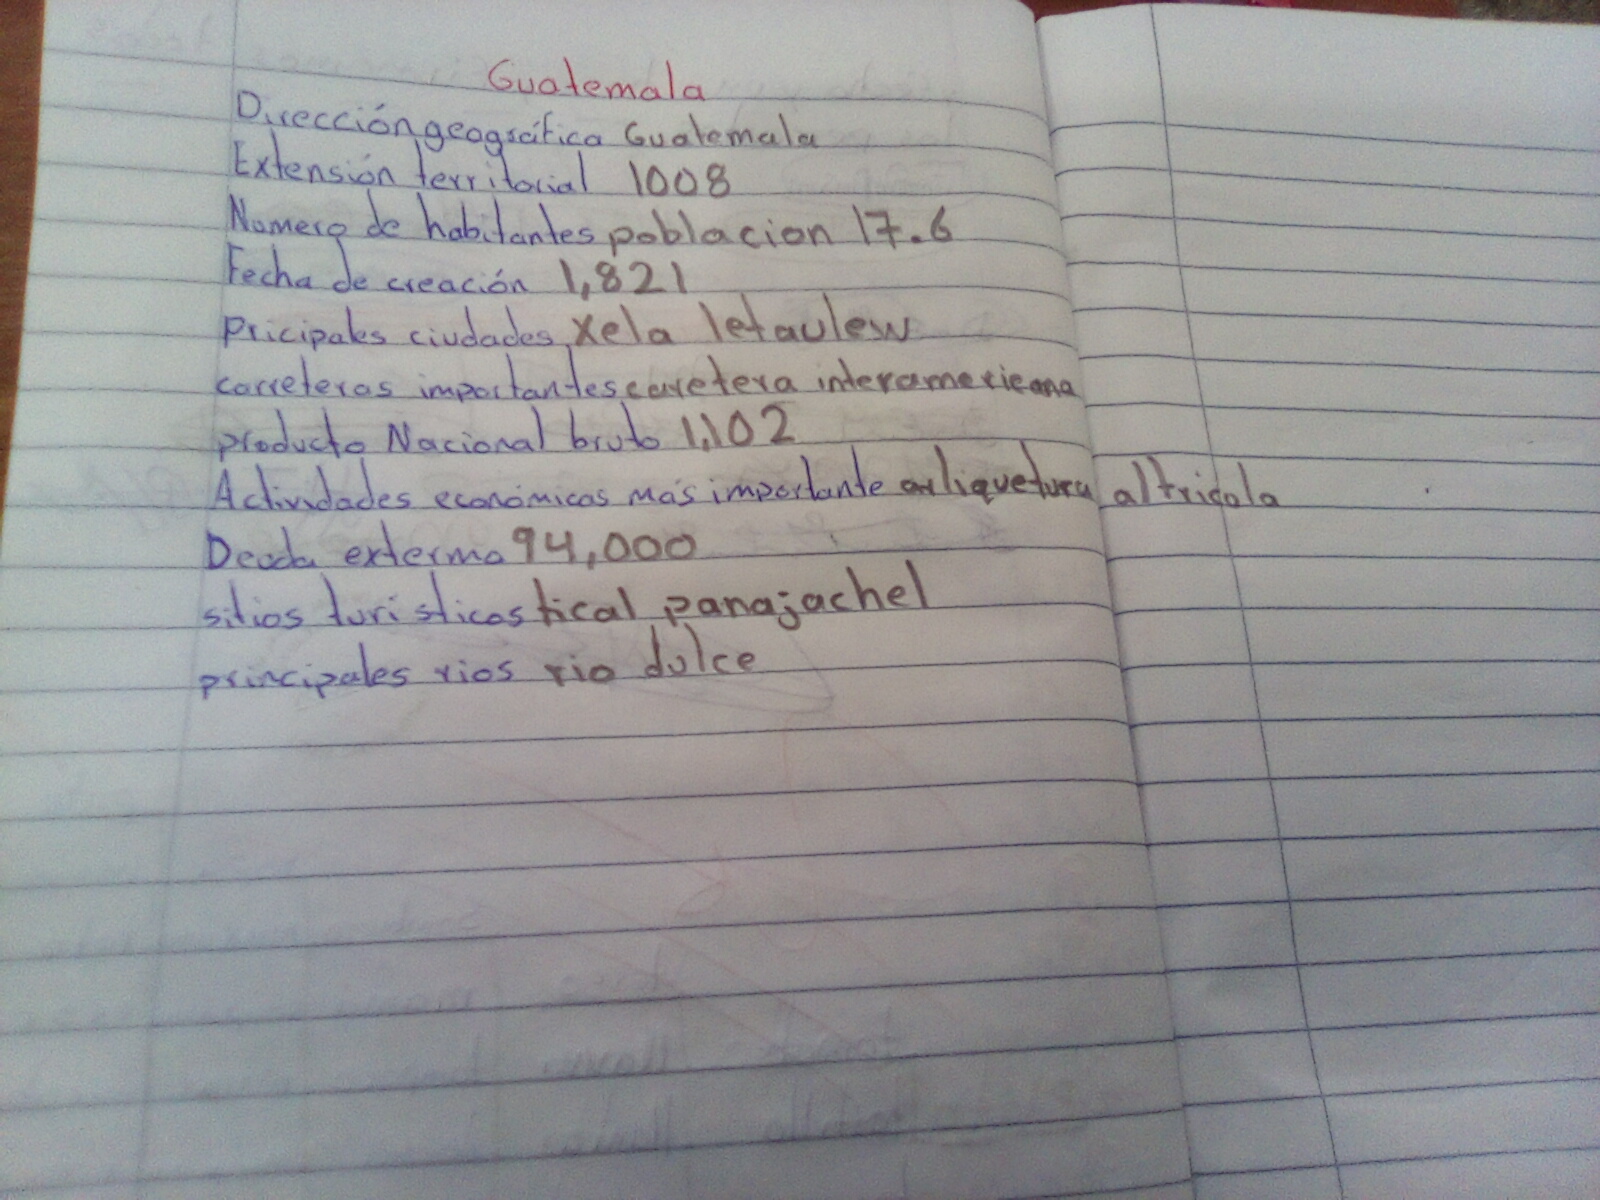 Guatemala
Dirección geográfica Guatemala
Extensión territorial 1008
Numero de habitantes poblacion 17.6
Fecha de creación 1,821
Pricipales ciudades Xela letaulew
carreteras importantes carretera interamericana
producto Nacional bruto 1,102
Actividades económicas más importante arliquetura altricola
Deoda exterma 94,000
sitios turisticos tical panajachel
principales rios rio dulce